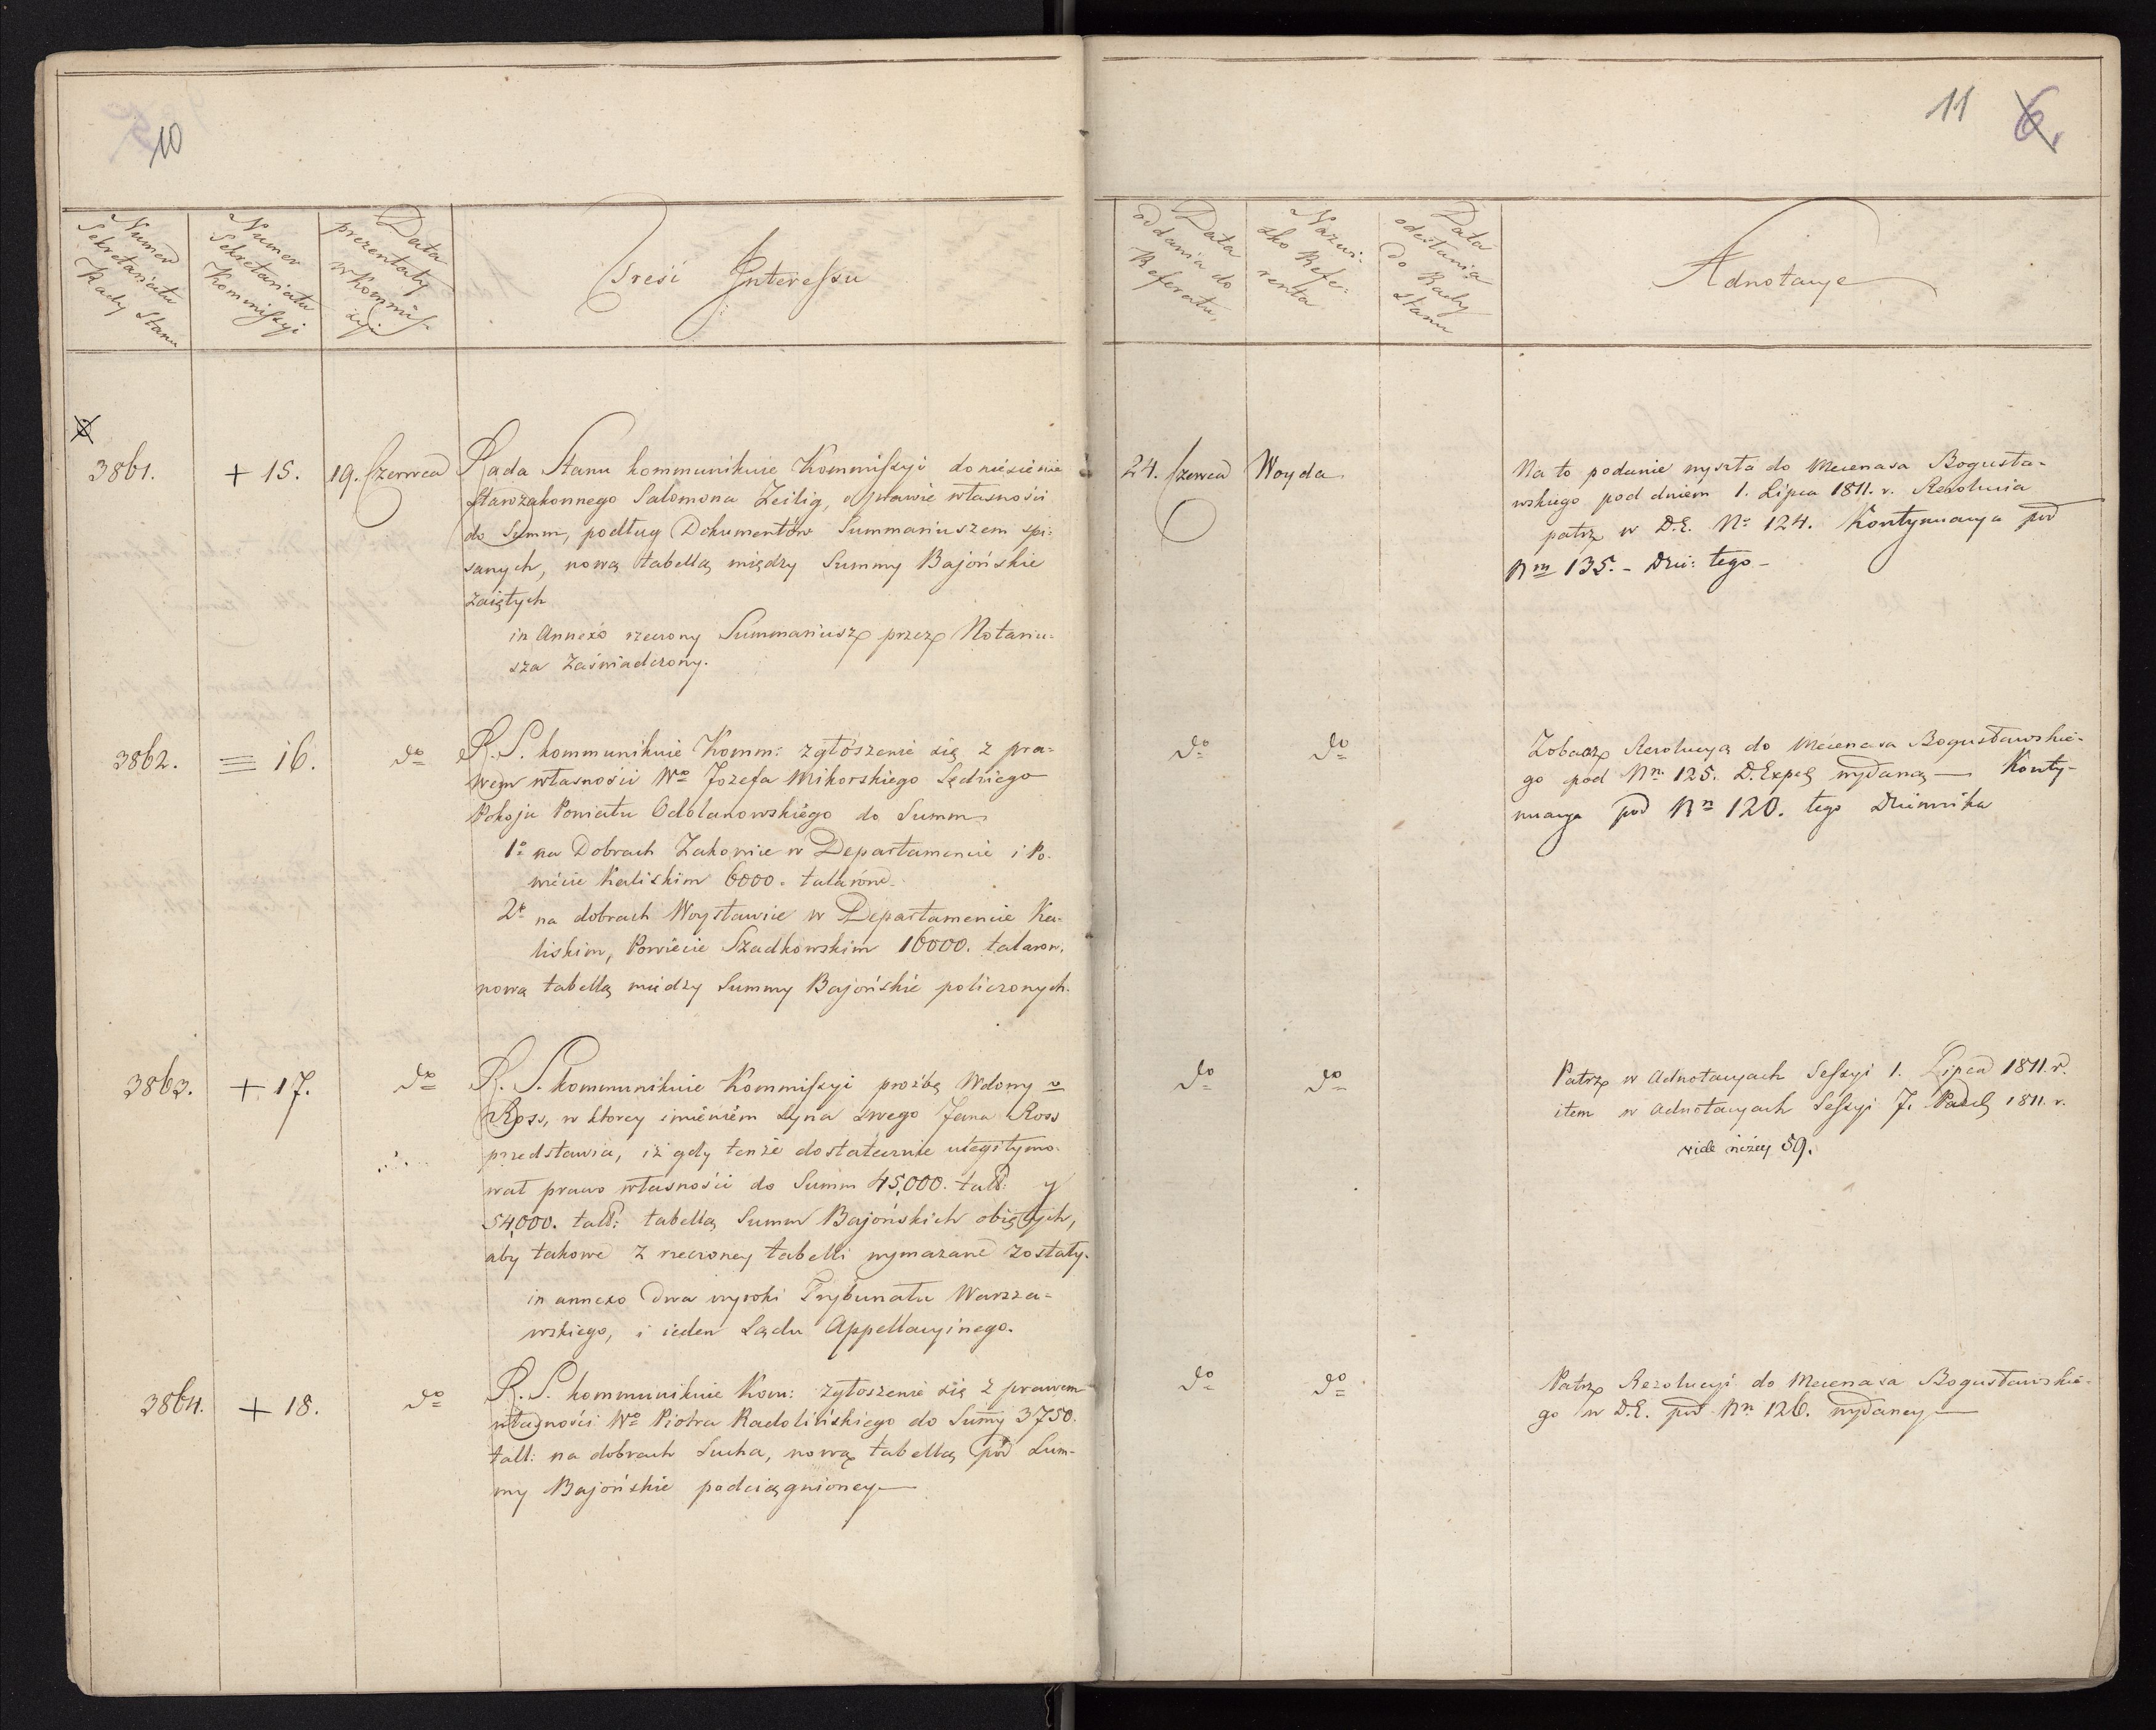 10
Numer Sekretariatu Rady Stanu
Numer Sekretariatu Kommissyi
Data prezentaty w Kommissyi
Treść Interessu
3861.
+ 15.
19. Czerwca
Rada Stanu kommunikuie Kommissyi doniesienie
Starozakonnego Salomona Zeilig, o prawie własności
do Summ, podług Dokumentów Summariuszem spi-
sanych, nową tabellą między Summy Bajońskie
zaiętych
in Annexo rzeczony Summariusz przez Notariu-
sza zaświadczony.
3862.
= 16.
do
R. S. kommunikuie Komm: zgłoszenie się z pra-
wem własności Wo Jozefa Mikorskiego Sędziego
Pokoju Powiatu Odolanowskiego do Summ
1o na Dobrach Zakowice w Departamencie i Po-
wiecie Kaliskim 6000. talarów
2o na dobrach Woysławice w Departamencie Ka-
liskim, Powiecie Szadkowskim 16000. talarow.
nową tabellą między Summy Bajońskie policzonych.
3863.
+ 17.
do
R. S. kommunikuie Kommissyi prożbę Wdowy
Ross, w ktorey imieniem Syna swego Jana Ross
przedstawia, iż gdy tenże dostatecznie ulegitymo-
wał prawo własności do Summ 45,000. tall: y
54,000. tall: tabellą Summ Bajońskich obiętych,
aby takowe z rzeczoney tabelli wymazane zostały.
in annexo dwa wyroki Trybunału Warsza-
wskiego, i ieden Sądu Appellacyinego.
3864.
+ 18.
do
R. S. kommunikuie Kom: zgłoszenie się z prawem
własności Wo Piotra Radolińskiego do Sumy 3750.
tall: na dobrach Sucha, nową tabellą pod Sum-
my Bajońskie podciągnioney
11 6.
Data oddania do Referatu,
Nazwi-
sko Refe-
renta
Data odesłania do Rady Stanu
Adnotacye
24. Czerwca
Woyda
Na to podanie wyszła do Mecenasa Bogusła-
wskiego pod dniem 1. Lipca 1811. r. Rezolucia
patrz w D.E. No 124. Kontynuacya pod
Nm 135. - Dzi: tego -
do
do
Zobacz Rezolucyą do Mecenasa Bogusławskie-
go pod Nn 125. D. Exped wydaną — Konty-
nuacya pod Nn 120. tego Dziennika
do
do
Patrz w Adnotacyach Sessyi 1. Lipca 1811. r.
item w Adnotacyach Sessyi 7. 1811. r.
vide niżey 59.
do
do
Patrz Rezolucyi do Mecenasa Bogusławskie-
go w D.E. pod Nn 126. wydaney —